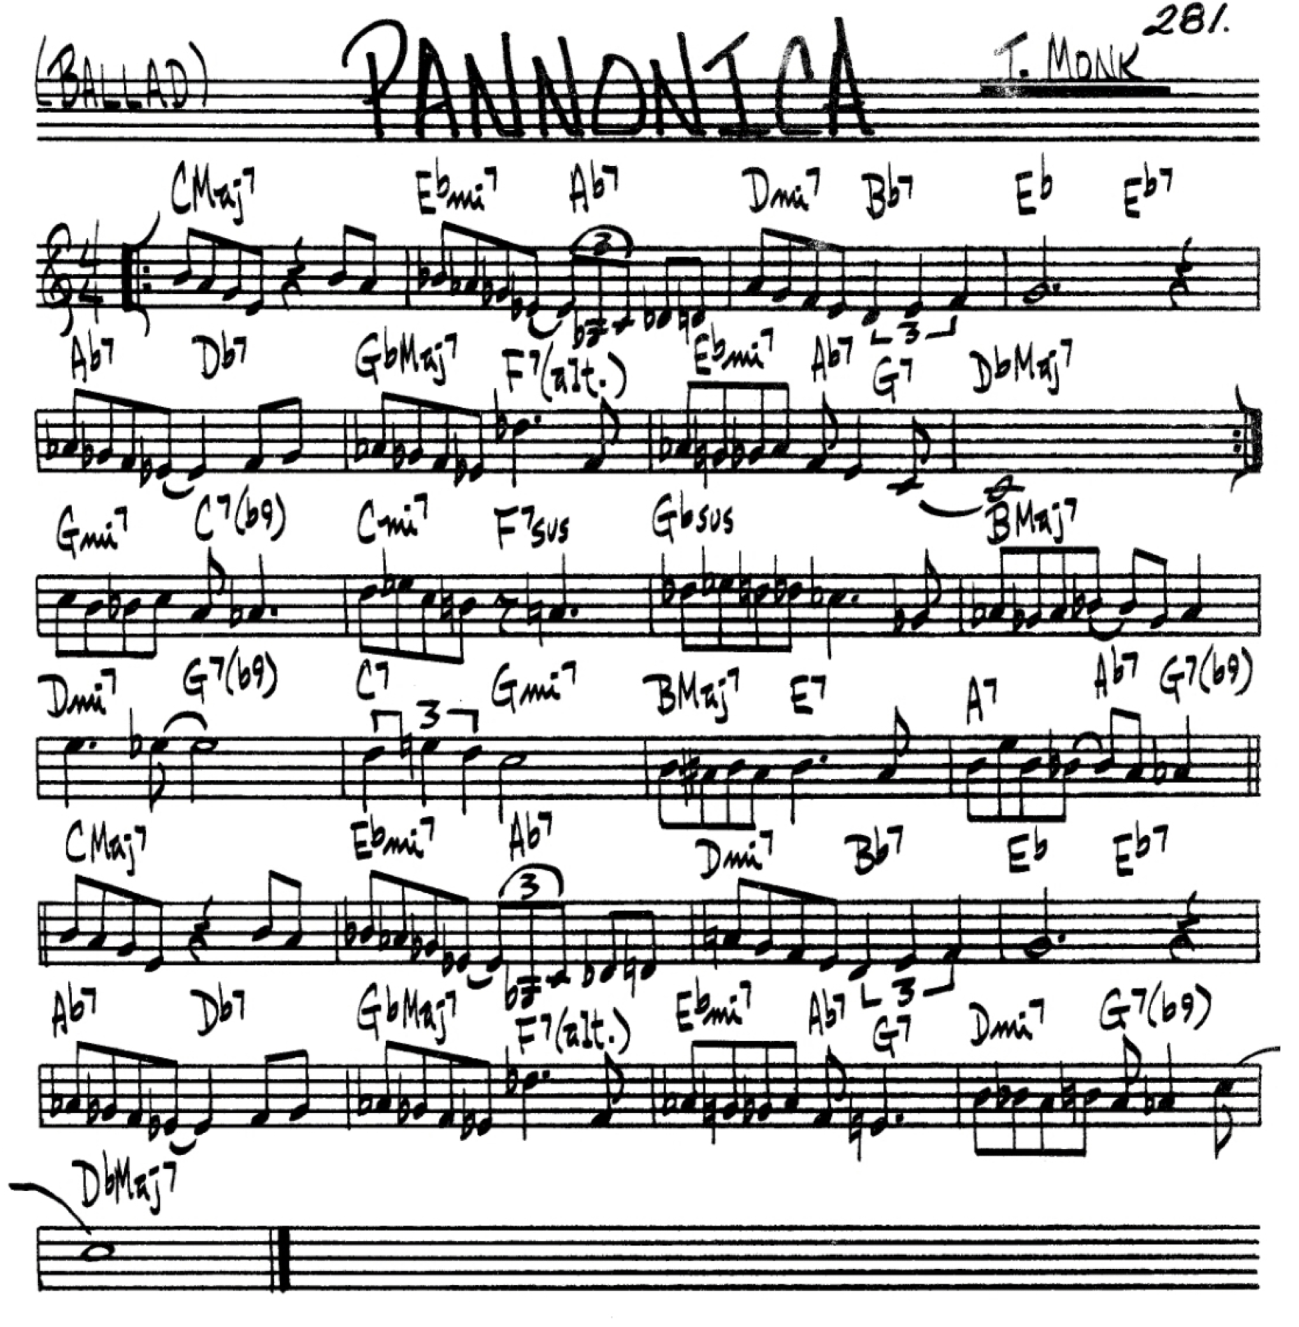 281.
(BALLAD) PANNONICA T. MONK
CMaj7 Ebmi7 Ab7 Dmi7 Bb7 Eb Eb7
4 3
4 3
Ab7 Db7 GbMaj7 F7(alt.) Ebmi7 Ab7 G7 DbMaj7
Gmi7 C7(b9) Cmi7 F7sus Gbsus BMaj7
Dmi7 G7(b9) C7 Gmi7 BMaj7 E7 A7 Ab7 G7(b9)
3
CMaj7 Ebmi7 Ab7 Dmi7 Bb7 Eb Eb7
3
3
Ab7 Db7 GbMaj7 F7(alt.) Ebmi7 Ab7 G7 Dmi7 G7(b9)
DbMaj7